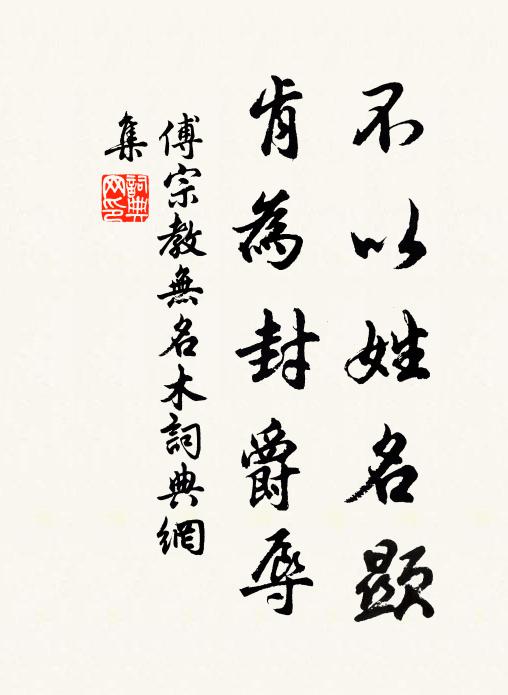 不以姓名顯
肯為封爵辱
傅宗教無名木詞典網
集
詞典
网印